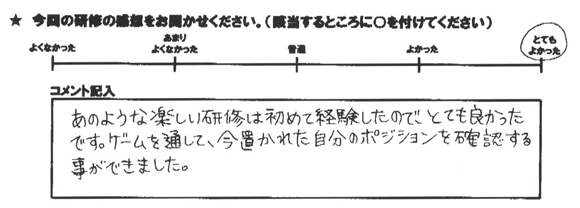 ★ 今回の研修の感想をお聞かせください。(該当するところに○を付けてください)
よくなかった あまりよくなかった 普通 よかった とてもよかった
コメント記入
あのような楽しい研修は初めて経験したのでとても良かった
です。ゲームを通して、今置かれた自分のポジションを確認する
事ができました。